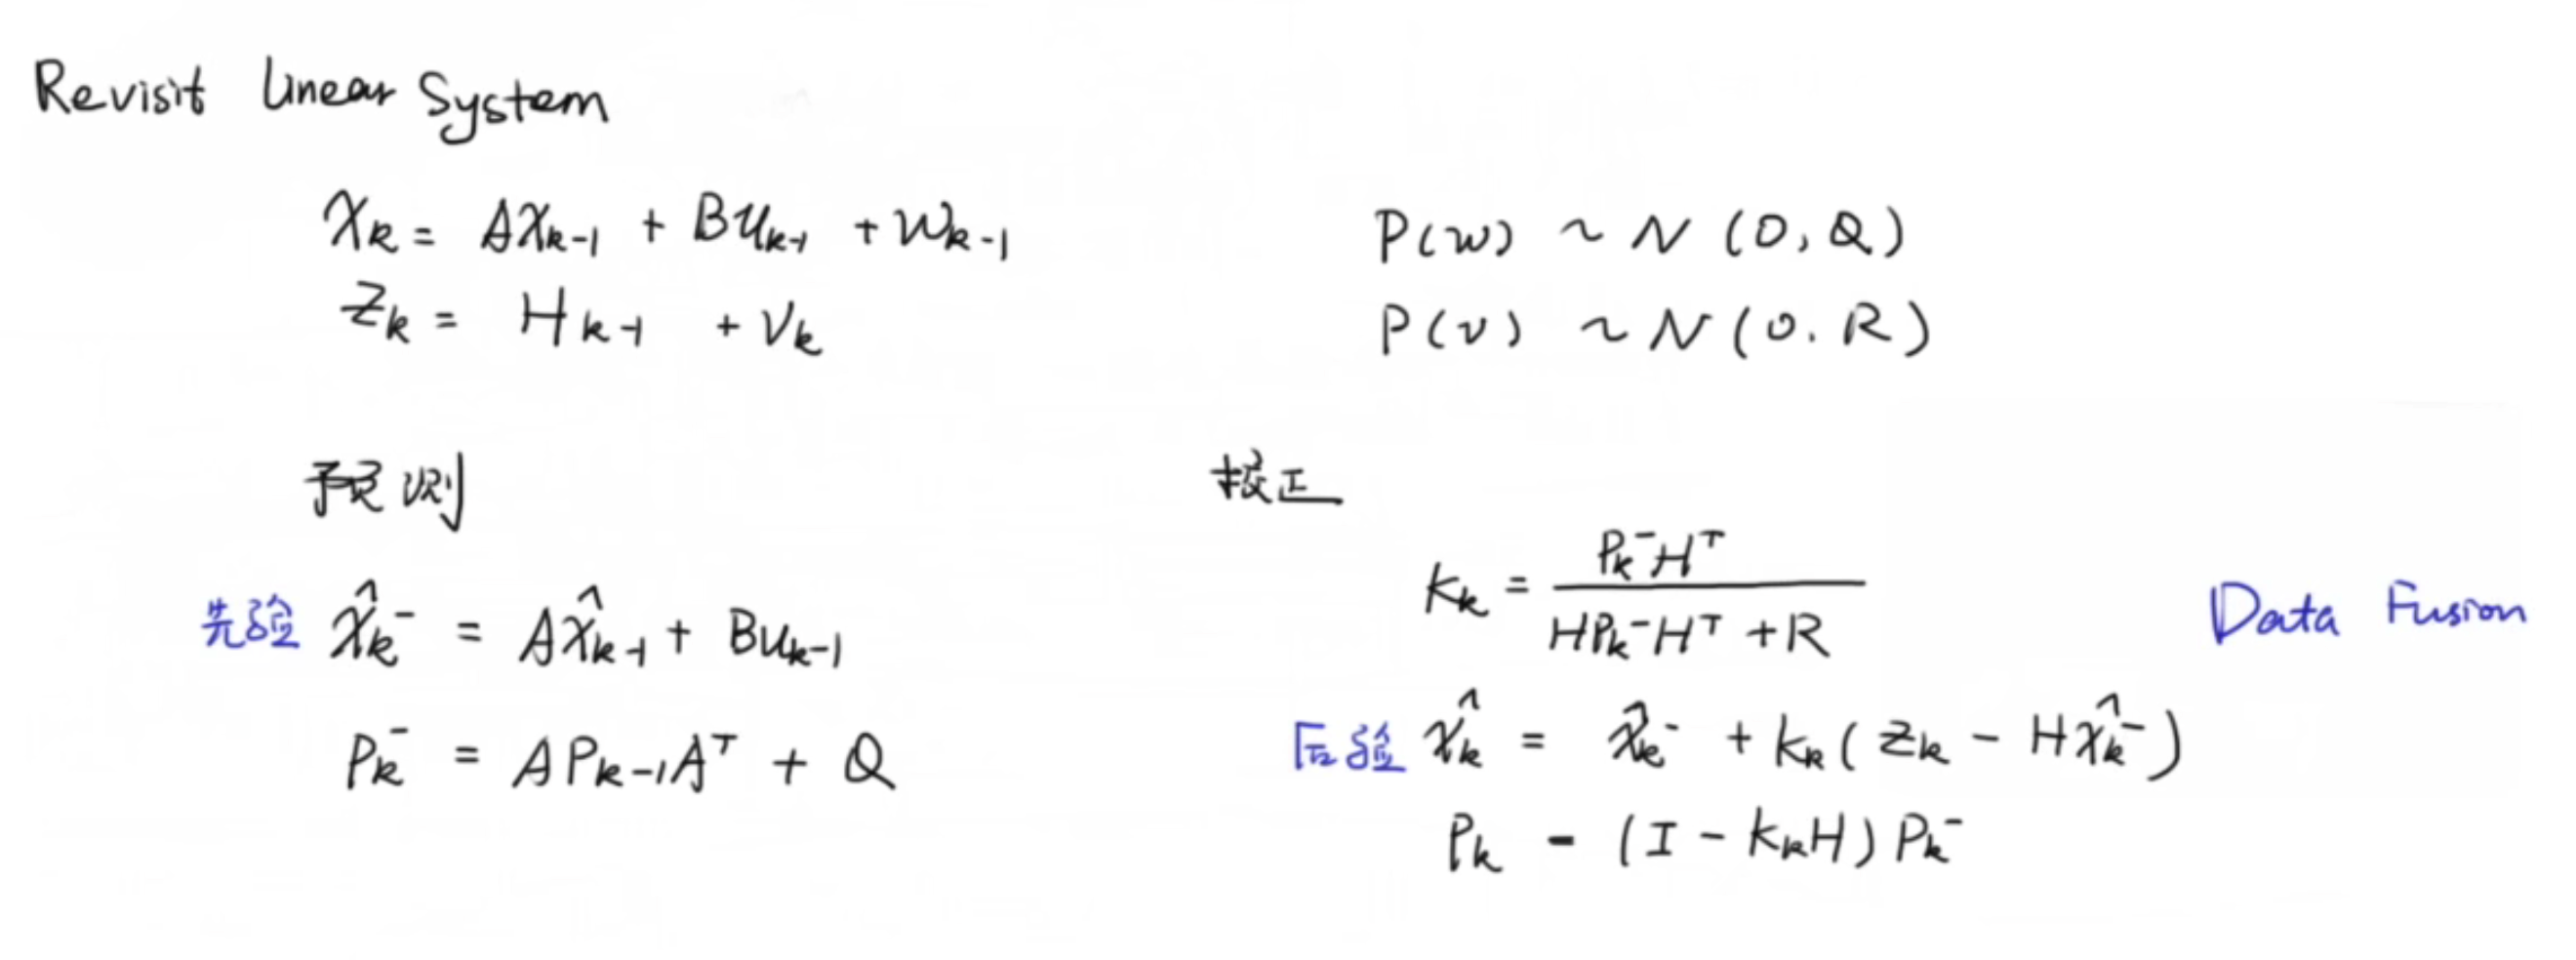 Revisit Linear System
X_k = AX_{k-1} + Bu_{k-1} + w_{k-1}
P(w) ~ N(0, Q)
Z_k = H_{k-1} + V_k
P(v) ~ N(0. R)
预测
校正
先验 x̂_k^- = Ax̂_{k-1} + Bu_{k-1}
P_k^- = AP_{k-1}A^T + Q
K_k = P_k^-H^T / (HP_k^-H^T + R)
Data Fusion
后验 x̂_k = x̂_k^- + K_k(z_k - Hx̂_k^-)
P_k - (I - K_kH)P_k^-